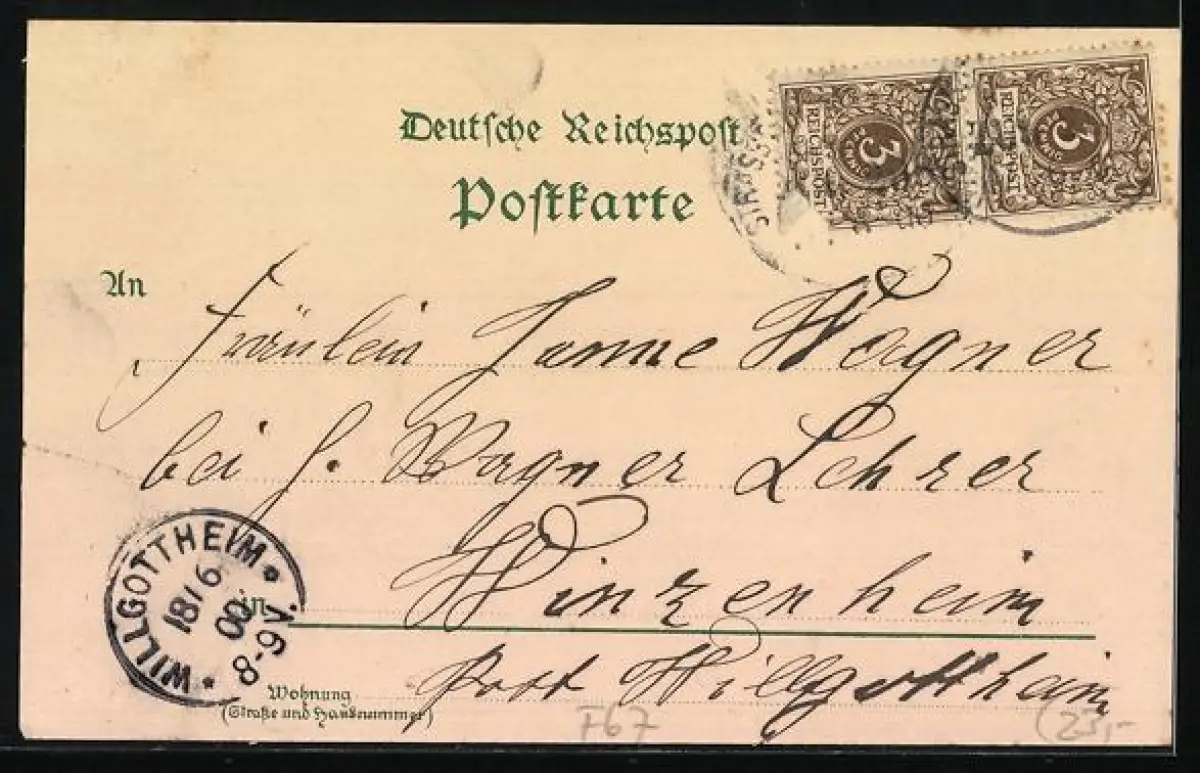 Deutsche Reichspost
Postkarte
3
PFENNIG
REICHSPOST
3
PFENNIG
REICHSPOST
STRASSB
An
Fräulein Janne Wagner
bei J. Wagner Lehrer
in Winzenheim
Post Willgottheim
WILLGOTTHEIM
18/6
00
8-9V.
Wohnung
(Straße und Hausnummer)
F67
(23,-